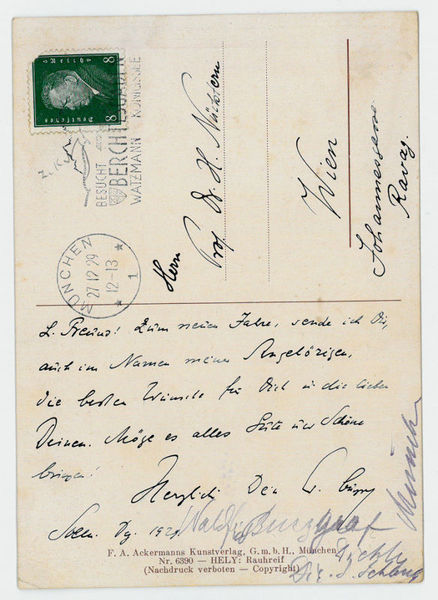 8 8
Deutsches
BESUCHT
BERCHTESGADEN
WATZMANN KÖNIGSSEE
MÜNCHEN
27.12.29
*12-13*
1
Herrn
Prof. Dr. H.
Wien
Johannesgasse
Ravag.
L. Freund! Zum neuen Jahre, sende ich Dir,
auch im Namen meiner Angehörigen,
die besten Wünsche für Dich und die lieben
Deinen. Möge es alles Gute und Schöne
bringen!
Herzlich Dein
F. A. Ackermanns Kunstverlag, G. m. b. H., München
Nr. 6390 — HELY: Rauhreif
(Nachdruck verboten — Copyright)